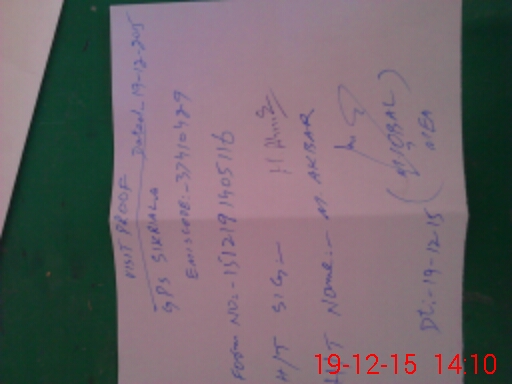 VISIT PROOF
Dated. 19-12-2015
GPS SIKRIALA
EMISCODE:- 37410429
Form NO:- 151219 1405116
H/T SIG:-
H/T Name:- M. AKBAR
(M. IQBAL)
MEA
Dt:- 19-12-15
19-12-15 14:10